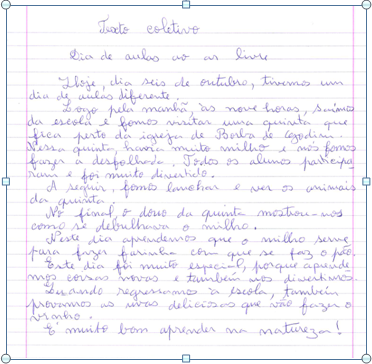 Texto coletivo
Dia de aulas ao ar livre
Hoje, dia seis de outubro, tivemos um
dia de aulas diferente.
Logo pela manhã, às nove horas, saímos
da escola e fomos visitar uma quinta que
fica perto da igreja de Borba de Godim.
Nessa quinta, havia muito milho e nós fomos
fazer a desfolhada. Todos os alunos participa
ram e foi muito divertido.
A seguir, fomos lanchar e ver os animais
da quinta.
No final, o dono da quinta mostrou-nos
como se debulhava o milho.
Neste dia aprendemos que o milho serve
para fazer farinha com que se faz o pão.
Este dia foi muito especial, porque aprende
mos coisas novas e também nos divertimos.
Quando regressamos à escola, também
provamos as uvas deliciosas que vão fazer o
vinho.
É muito bom aprender na natureza!